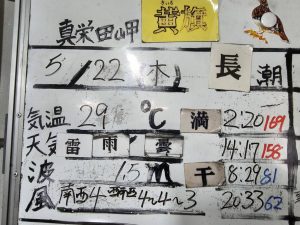 真栄田岬
きいろ
黄旗
5/22(木) 長潮
気温 29 ℃ 満 2:20 169
天気 雷 雨 曇 14:17 158
波 1.5m 干 8:29 81
風 南西4 4~3 20:33 62